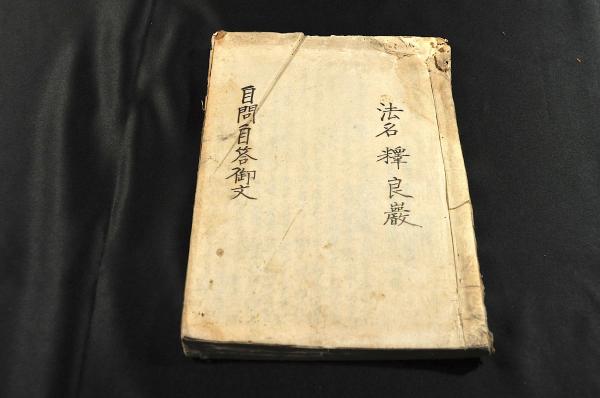 法名釋良巖
自問自答御文